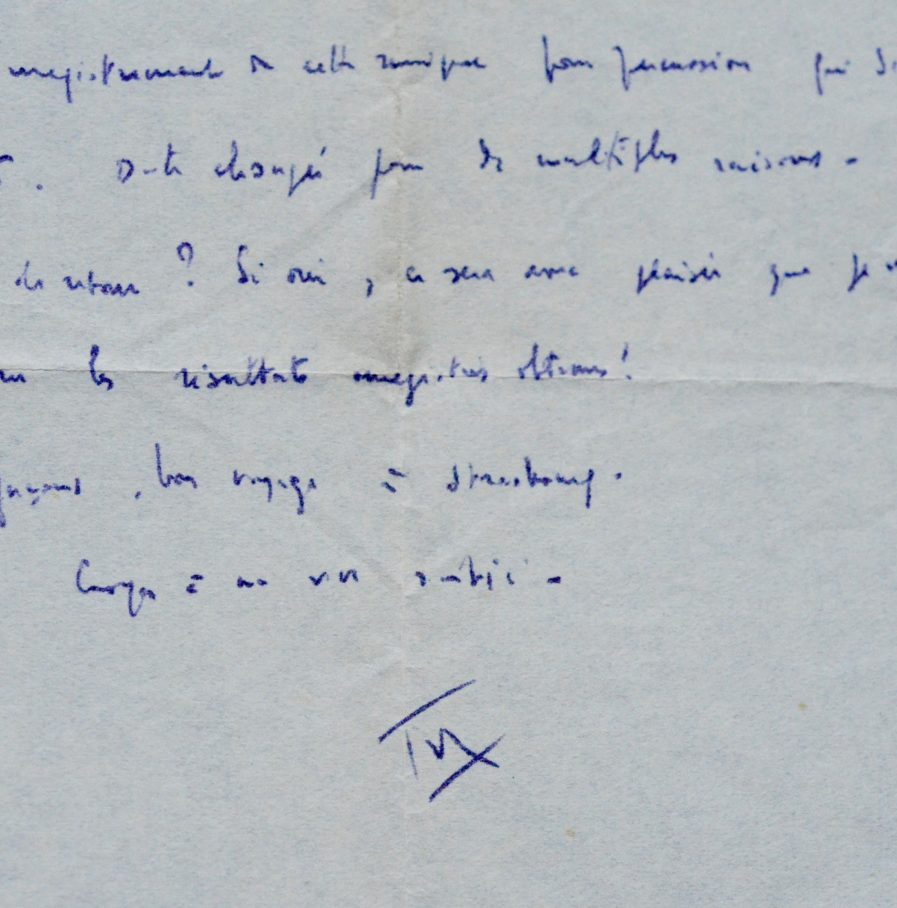 enregistrement de cette musique pour percussion qui
Date changée pour de multiples raisons -
de retour ? Si oui, ce sera avec plaisir que je
les résultats enregistrés obtenus !
bon voyage à Strasbourg.
Croyez à ma vive amitié -